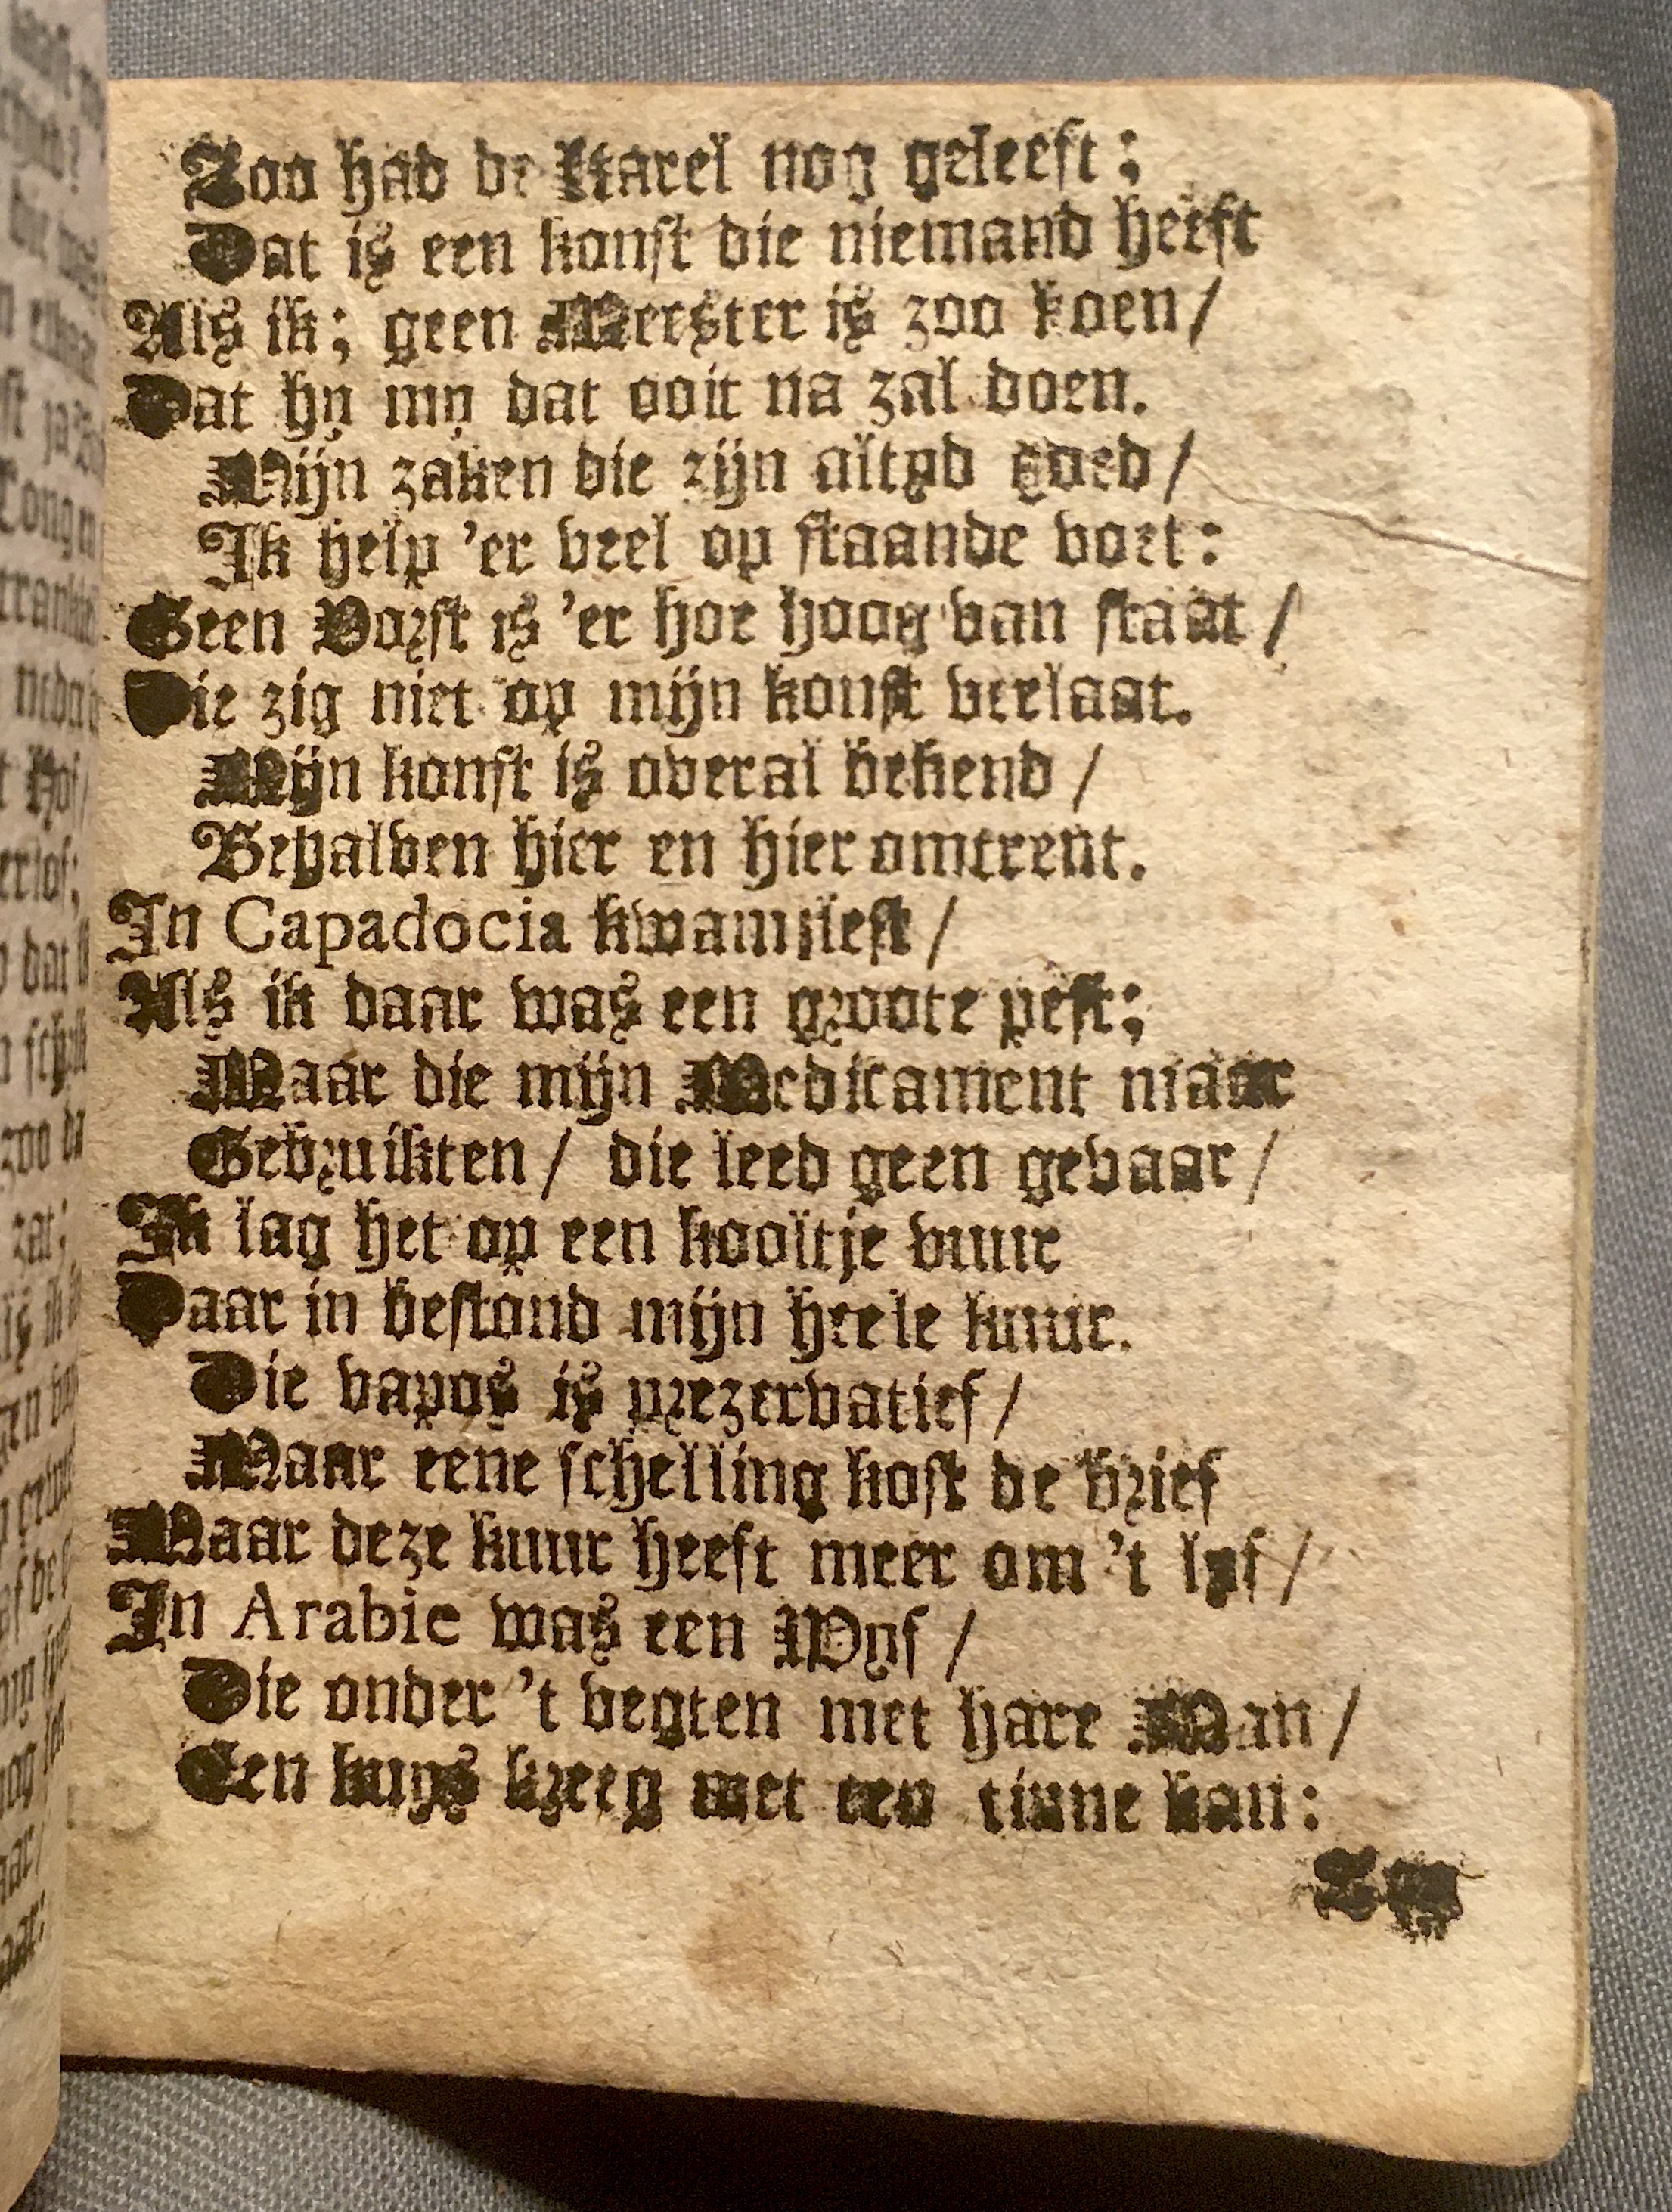 Zoo had de Karel nog geleeft;
Dat is een konst die niemand heeft
Als ik; geen Meester is zoo koen /
Dat hy my dat ooit na zal doen.
Mijn zaken die zijn altyd goed /
Ik help 'er veel op staande voet:
Geen Vorst is 'er hoe hoog van staat /
Die zig niet op mijn konst verlaat.
Mijn konst is overal bekend /
Behalven hier en hier omtrent.
In Capadocia kwam lest /
Als ik daar was een groote pest;
Maar die mijn Medicament maar
Gebruikten / die leed geen gevaar /
Ik lag het op een kooltje vuur
Daar in bestond mijn heele kuur.
Die vapos is prezervatief /
Maar eene schelling kost de brief
Maar deze kuur heeft meer om 't lyf /
In Arabie was een Wyf /
Die onder 't vegten met hare Man /
Een kuys kreeg met een tinne kan: